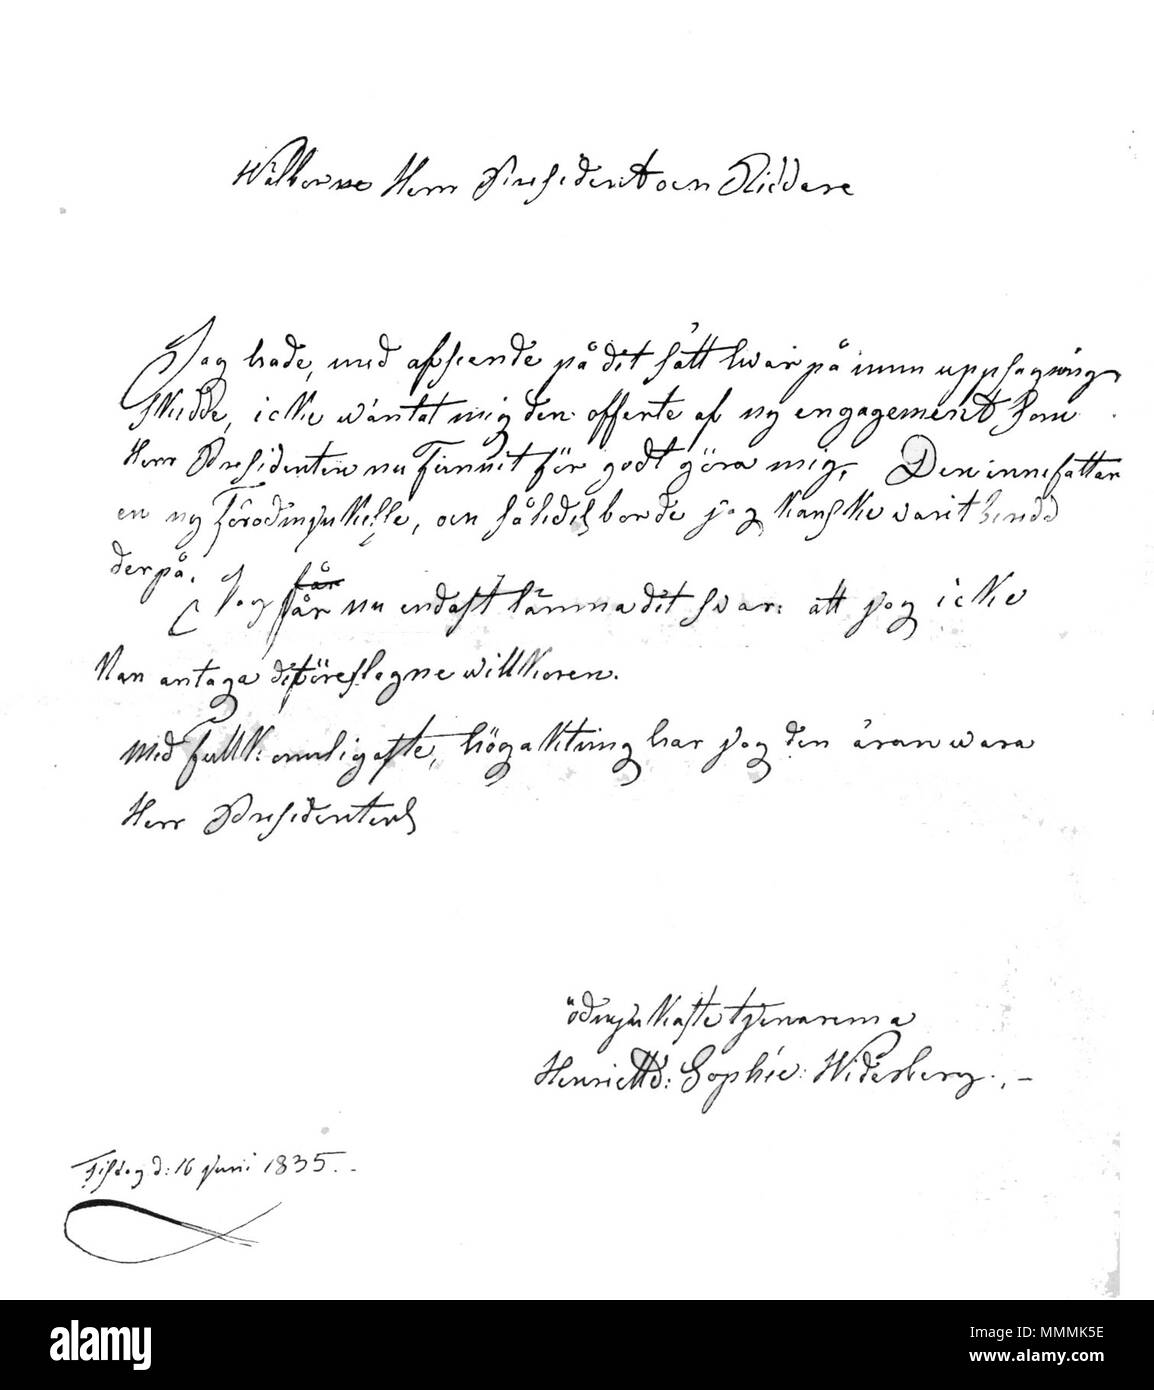 Wälborne Herr President och Riddare
Jag hade, med afseende på det sätt hwarpå min uppsägning
skedde, icke wäntat mig den offerte af ny engagement som
Herr Presidenten nu funnit för godt göra mig. Den innefattar
en ny förödmjukelse, och således borde jag kanske varit beredd
derpå. Jag får
får nu endast lämna det svar: att jag icke
kan antaga de föreslagne willkoren.
Med fullkomligaste högaktning har jag den äran wara
Herr Presidentens
ödmjukaste tjenarinna
Henriette: Sophie: Widerberg.,–
Tisdag d: 16 Juni 1835.-
alamy
Image ID: MMMK5E
www.alamy.com